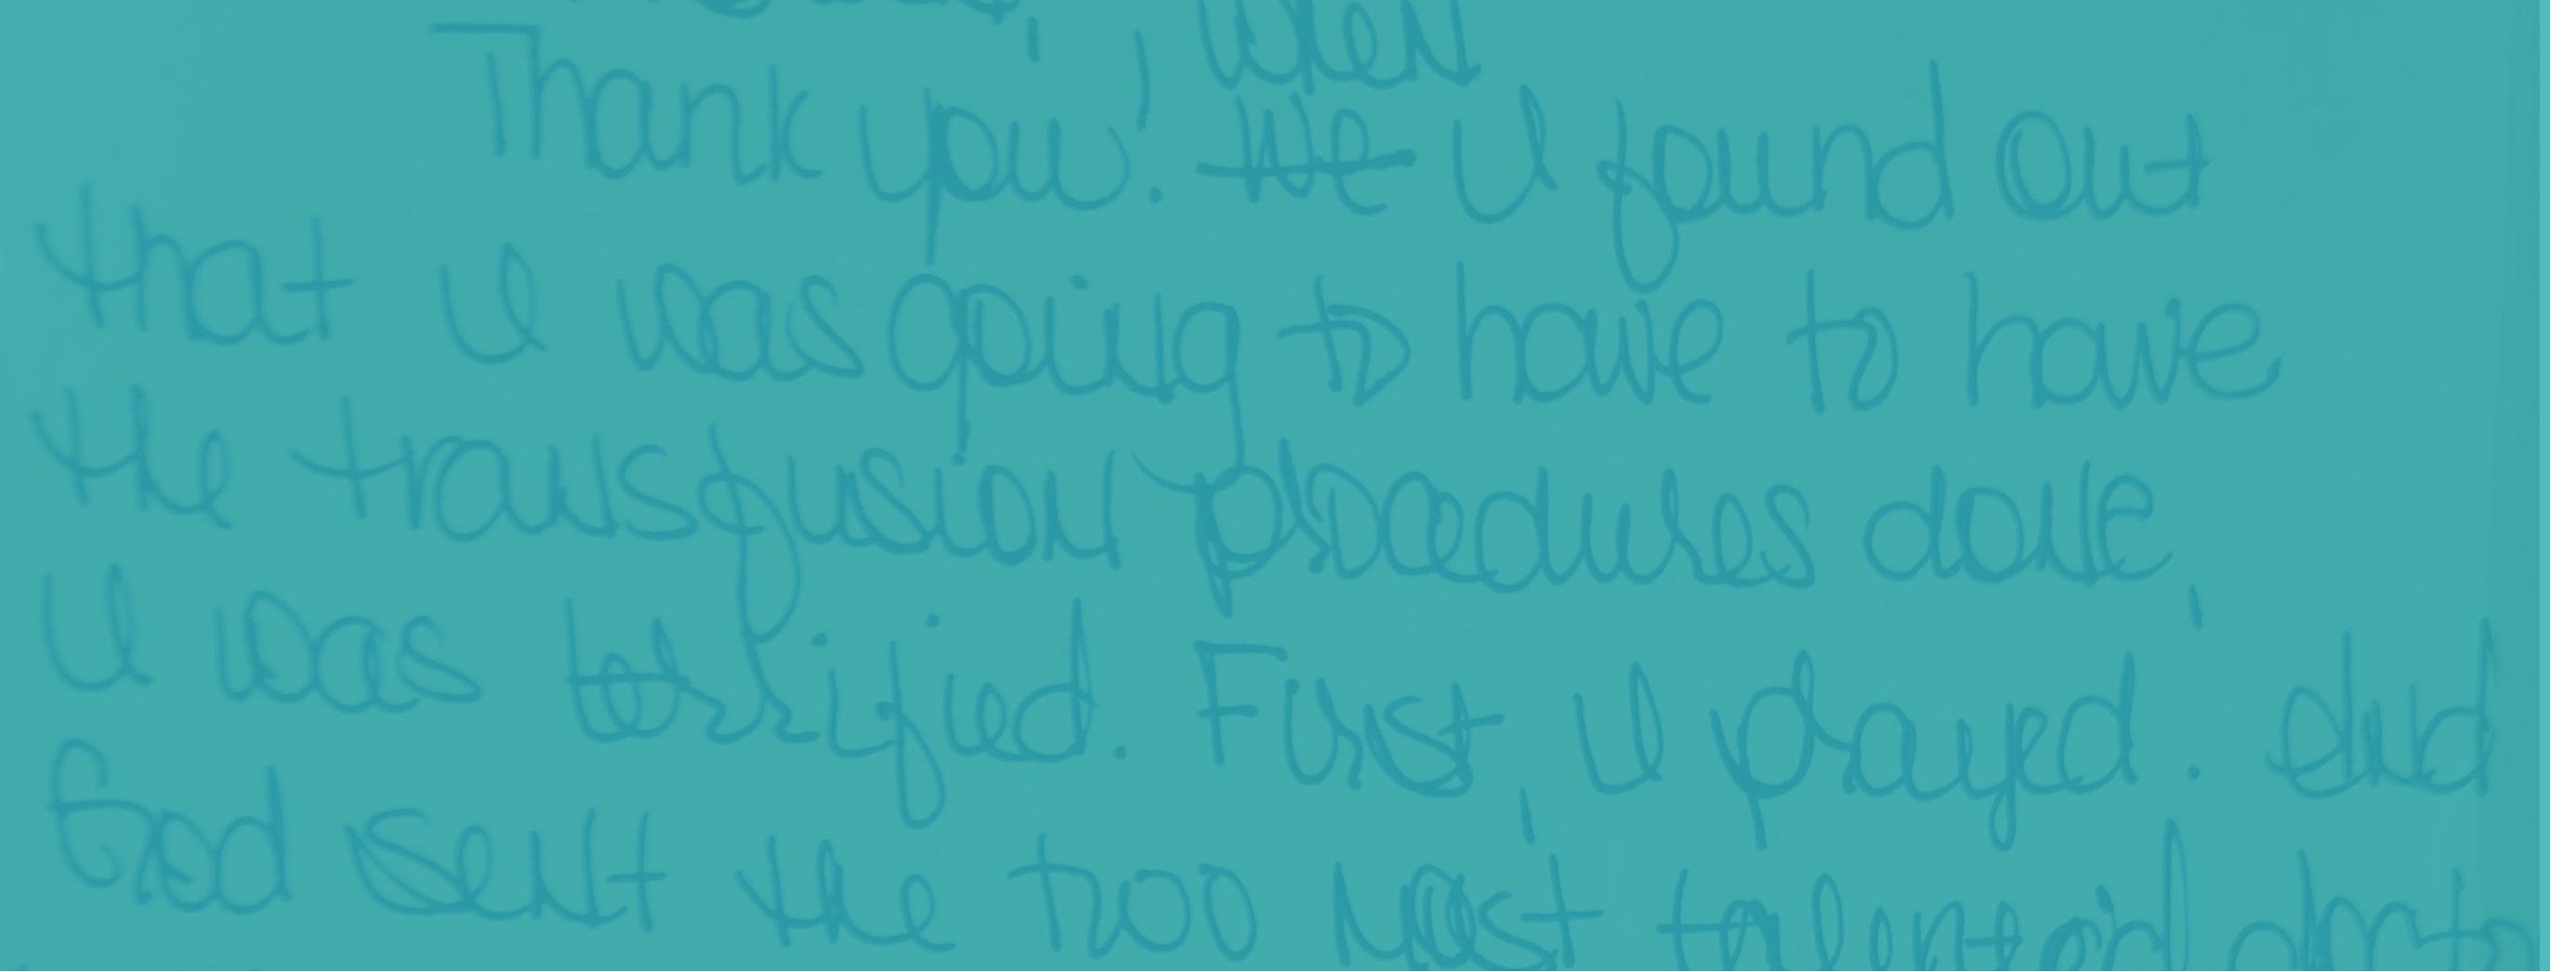 When
Thank you! We I found out
that I was going to have to have
the transfusion procedures done,
I was terrified. First, I prayed. And
God sent the two most talented